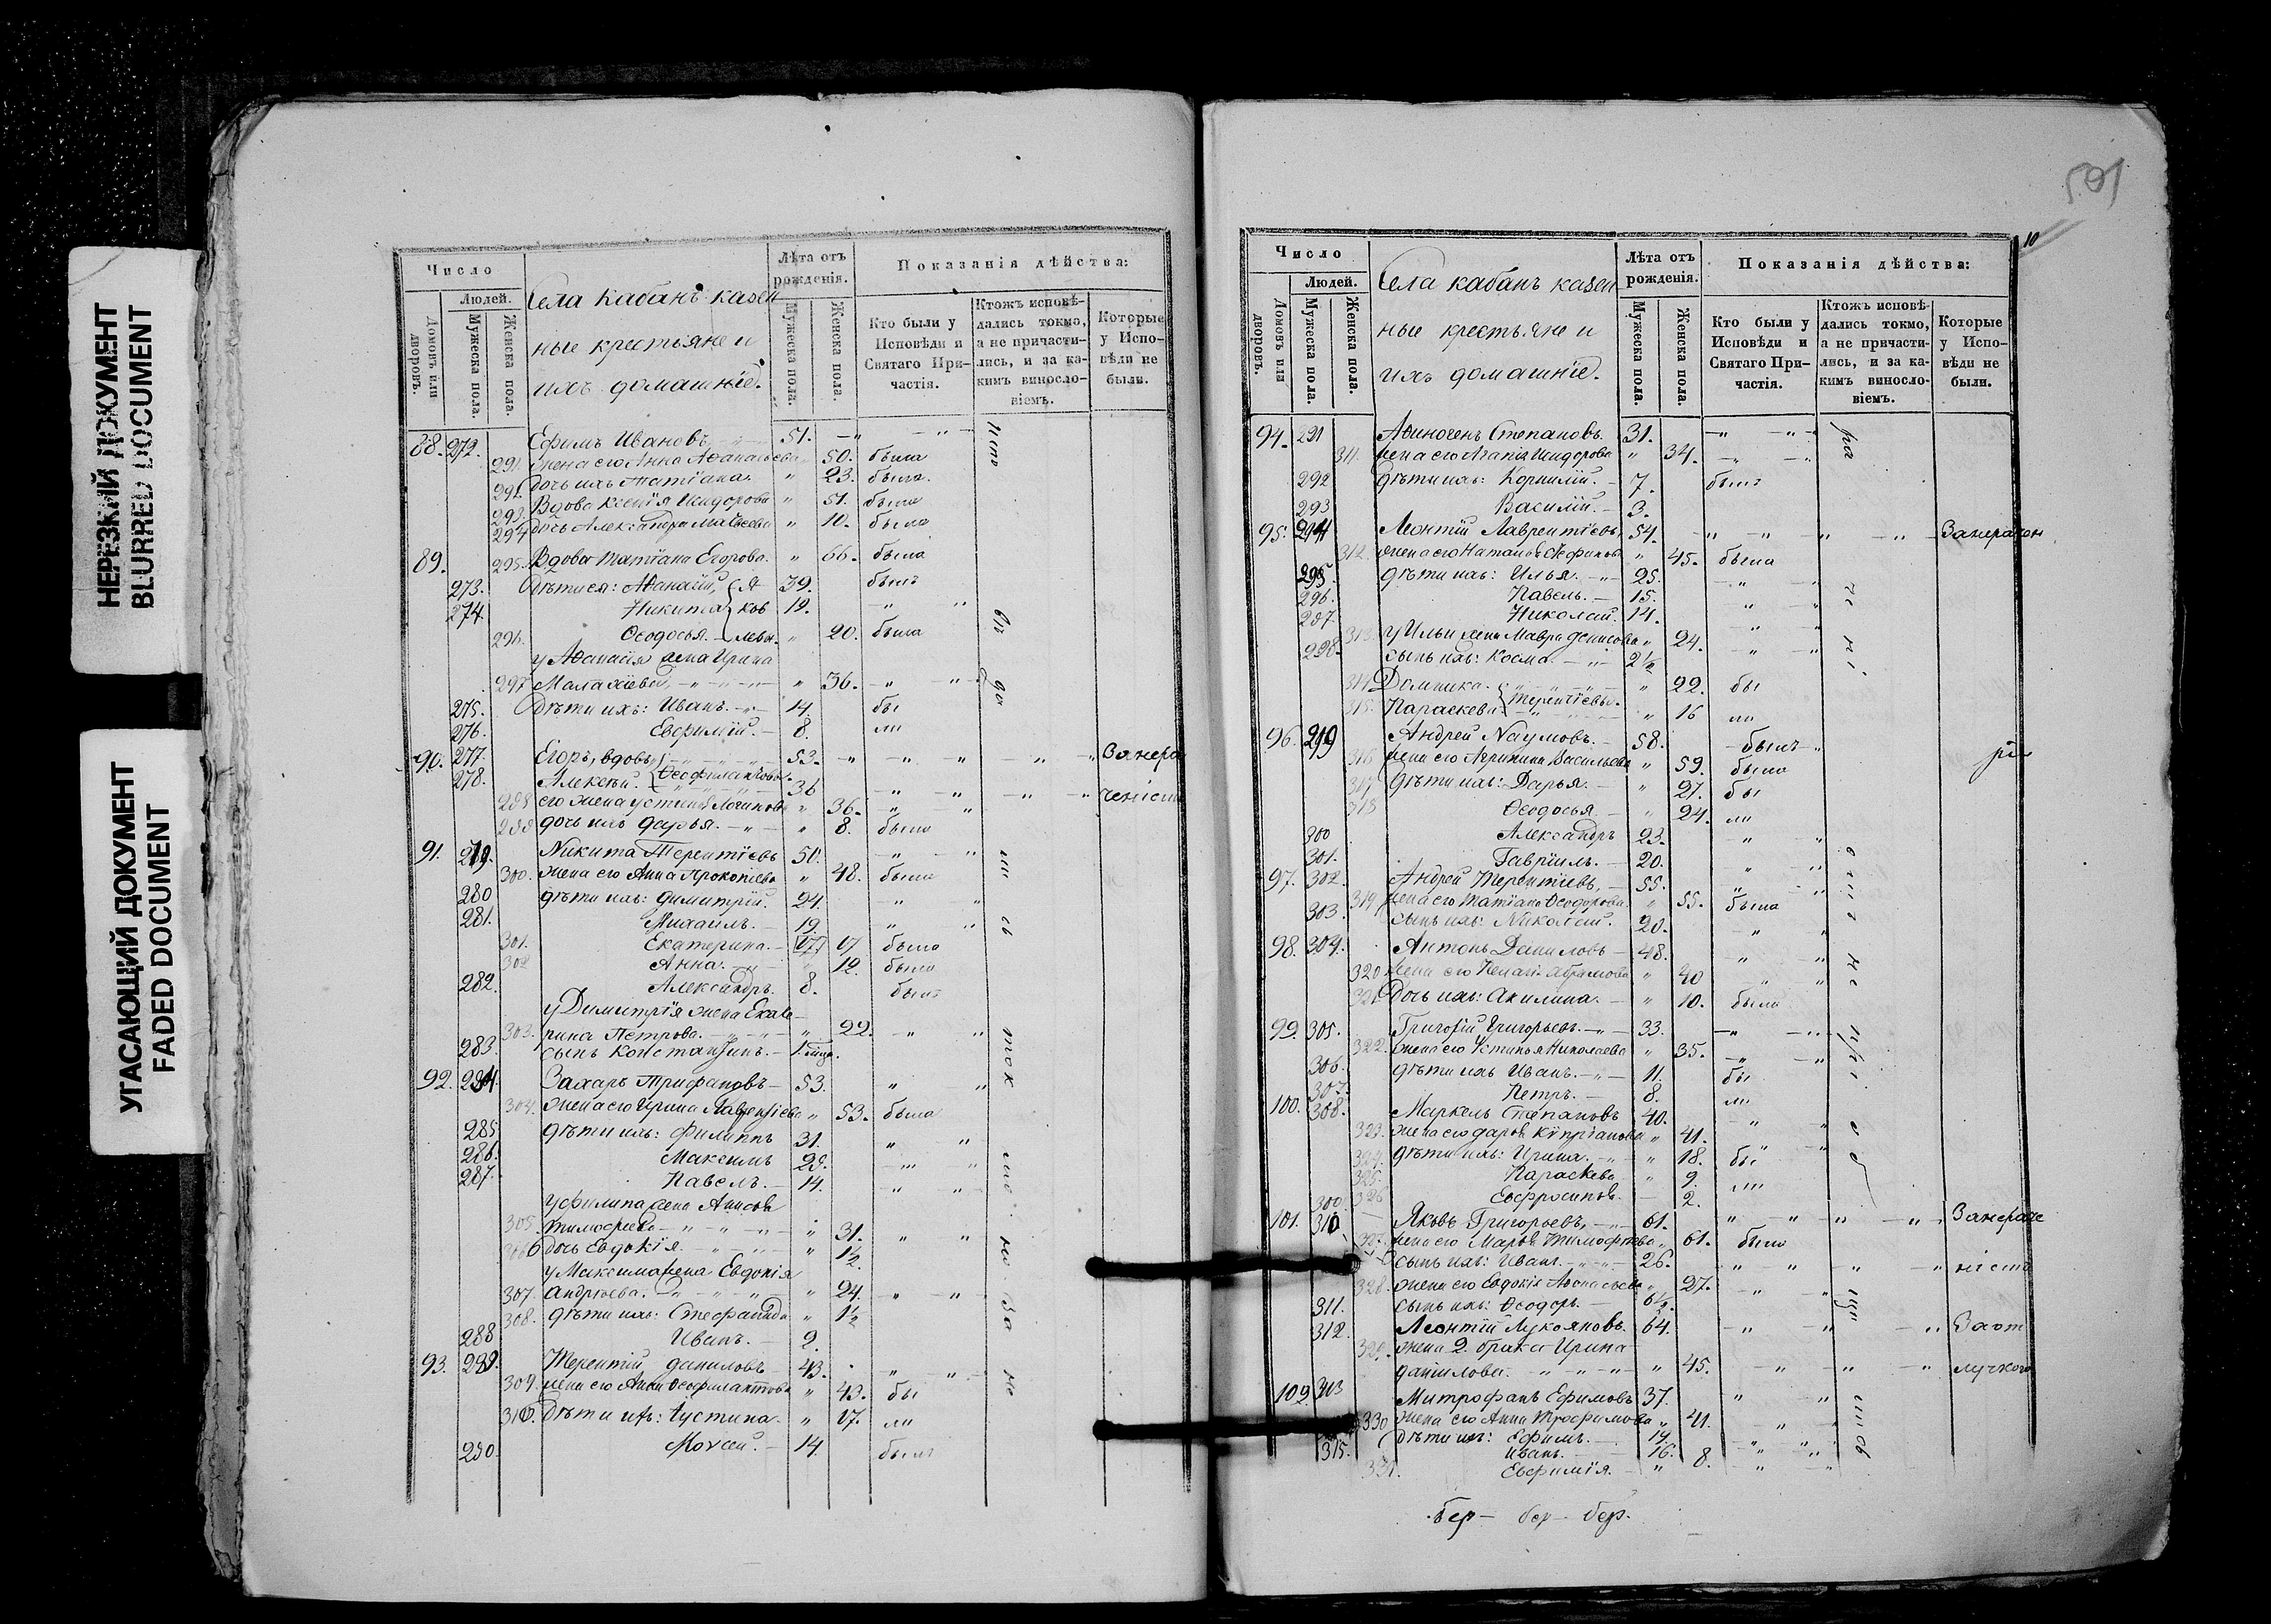 НЕРЕЗКИЙ ДОКУМЕНТ
BLURRED DOCUMENT
УГАСАЮЩИЙ ДОКУМЕНТ
FADED DOCUMENT
Число
Людей.
Домовъ или дворовъ.
Мужеска пола.
Женска пола.
Села Кабанъ казен
ные крестьяне и
ихъ домашніе.
Лѣта отъ рожденія.
Мужеска пола.
Женска пола.
Показанія дѣйства:
Кто были у Исповѣди и Святаго Причастія.
Ктожъ исповѣдались токмо, а не причастились, и за какимъ винословіемъ.
Которые у Исповѣди не были.
88. 272. Ефимъ Ивановъ 51.
291. жена его Анна Аѳанасьева 50. была
292. дочь ихъ Татіана. 23. была.
293. Вдова Ксенія Исидорова 51. была
294 дочь Александра Матѳеева 10. была
89. 295. Вдова Татіана Егорова. 66. была
273. Дѣти ея: Аѳанасій, Я 39. былъ
274. Никита ков 19.
296. Ѳеодосья. левы. 20. была
у Аѳанасія жена Ирина
297 Малахіева 36.
275. Дѣти ихъ: Иванъ. 14. бы
276. Евфимій. 8. ли
90. 277. Егоръ, вдовъ 53. Занера
278. Алексѣй. Ѳеофилактовы. 36 ченіем
298 его жена Устинья Логинова 36.
299 дочь ихъ Дарья. 8. была
91. 279. Никита Терентіевъ 50.
300. жена его Анна Прокопіева 48. была
280 дѣти ихъ: Димитрій. 24.
281. Михаилъ. 19.
301. Екатерина. 17 была
302 Анна. 12. была
282. Александръ. 8. былъ
у Димитрія жена Екате
303. рина Петрова. 22.
283. сынъ Константинъ.
92. 284. Захаръ Трифановъ 53.
304. жена его Ирина Лаврентіева 53. была
285. дѣти ихъ: Филиппъ 31.
286. Максимъ 29.
287. Павелъ. 14.
у Филипа жена Анисья
305. Тимофеева 31.
306 дочь Евдокія. 1½
у Максима жена Евдокія
307. Андреева. 24.
308. дѣти ихъ: Стефанида 1½
288 Иванъ. 2.
93. 289. Терентій Даниловъ 43.
309. жена его Анна Ѳеофилактова 43. бы
310. Дѣти ихъ: Іустина. 17. ли
290. Моѵсей. 14. былъ
501
10
Число
Людей.
Домовъ или дворовъ.
Мужеска пола.
Женска пола.
Села кабанъ казен
ные крестьяне и
ихъ домашніе.
Лѣта отъ рожденія.
Мужеска пола.
Женска пола.
Показанія дѣйства:
Кто были у Исповѣди и Святаго Причастія.
Ктожъ исповѣдались токмо, а не причастились, и за какимъ винословіемъ.
Которые у Исповѣди не были.
94. 291 Аѳиногенъ Степановъ. 31.
311. жена его Агапія Исидорова 34.
292 Дѣти ихъ: Корнилій. 7. былъ
293 Василій. 3.
95. 294 Леонтій Лаврентіевъ, 54. Занерачен
312. жена его Наталья 45. была
295 дѣти ихъ: Илья. 25.
296. Павелъ. 15.
297 Николай. 14.
313. у Ильи жена Мавра Денисова 24.
298. сынъ ихъ: Косма. 2½
314 Домника. 22. бы
315. Параскева Терентіевы. 16 ли
96. 299 Андрей Наумовъ. 58. былъ
316 жена его Агрипина Васильева 59. была
317 Дѣти ихъ: Дарья. 27. бы
318 Ѳеодосья. 24. ли
300 Александръ 23.
301. Гавріилъ. 20.
97. 302. Андрей Терентіевъ, 55.
319. жена его Татіана Ѳеодорова. 55. была
303. сынъ ихъ: Николай. 20.
98. 304. Антонъ Даниловъ 48.
320 жена его Пелагія Абрамова 40
321. Дочь ихъ: Акилина. 10. была
99. 305. Григорій Григорьевъ. 33.
322. жена его Устинья Николаева 35.
306. дѣти ихъ Иванъ. 11. бы
307. Петръ. 8. ли
100. 308. Маркелъ Степановъ 40.
323. жена его Дарья Кипріанова 41.
324. дѣти ихъ: Ирина. 18. бы
325. Параскева 9. ли
326 Евфросинья. 2.
101. 310. Яковъ Григорьевъ, 61. Занераче
327. жена его Марѳа Тимофѣева 61. была
сынъ ихъ: Иванъ. 26. ніемъ
328. жена его Евдокія Аѳанасьева 27.
311. сынъ ихъ: Ѳеодоръ.
312. Леонтій Лукояновъ. 64. Заот
329. жена 2. брака Ирина
Данилова. 45. лучкою
102. 313 Митрофанъ Ефимовъ 37.
330 жена его Анна Трофимова 41.
Дѣти ихъ: Ефимъ. 19.
315. Иванъ. 16.
331. Евфимія. 8.